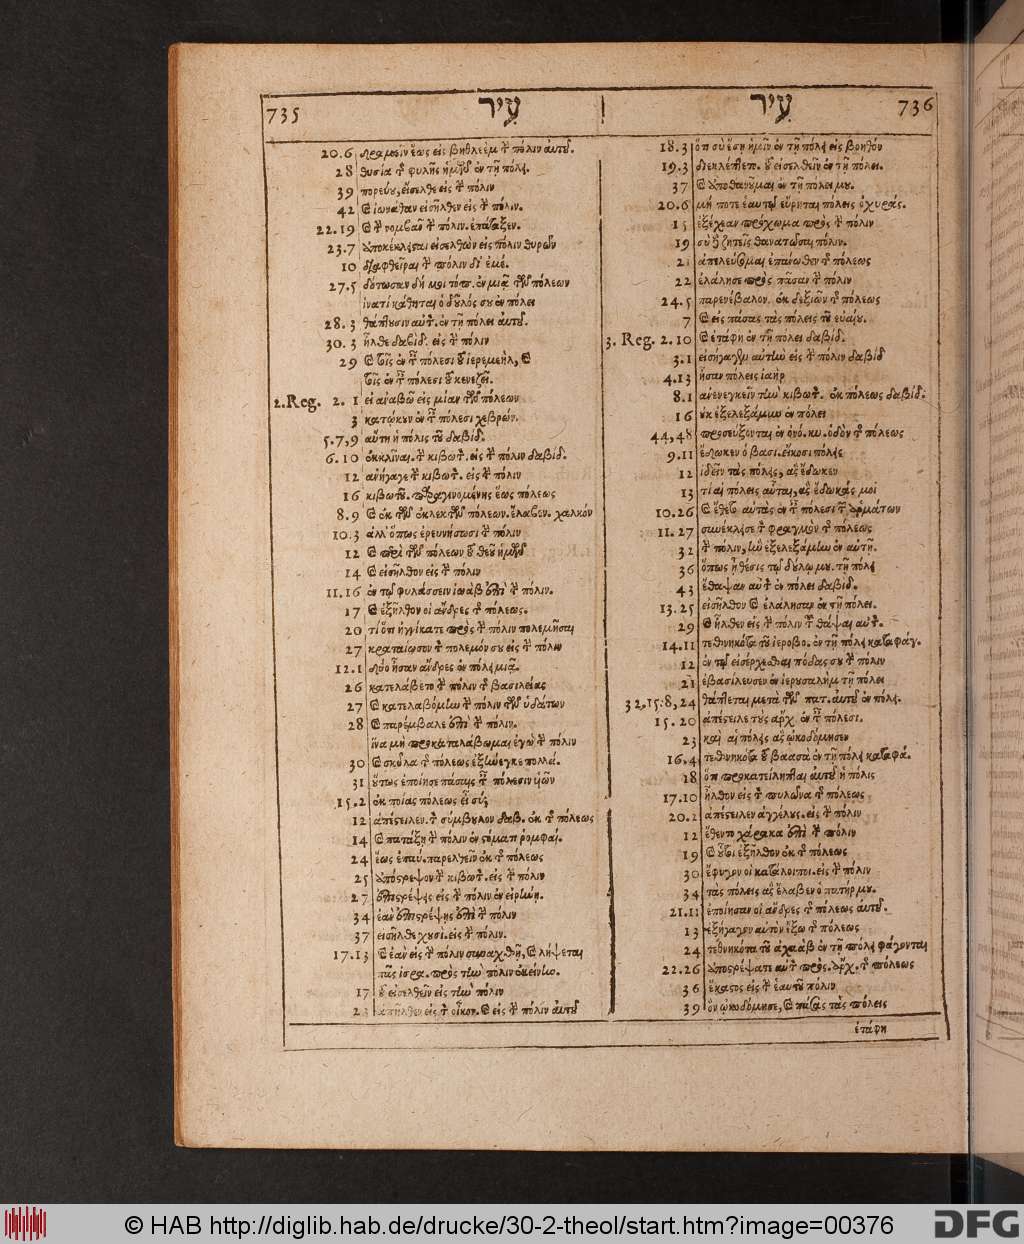 735 עִיר
20.6 δραμεῖν ἕως εἰς βηθλεὲμ τ πόλιν αὐτοῦ.
28 θυσία τ φυλῆς ἡμῶν ἐν τῇ πόλει.
39 πορεύου, εἴσελθε εἰς τ πόλιν
42 καὶ ἰωνάθαν εἰσῆλθεν εἰς τ πόλιν.
22.19 καὶ τ νομβαν τ πόλιν. ἐπάταξεν.
23.7 ἀποκέκλεισται εἰσελθὼν εἰς πόλιν θυρῶν
10 διαφθεῖραι τ πόλιν δι' ἐμέ.
27.5 δότωσαν δή μοι τόπ. ἐν μιᾷ τῶν πόλεων
ἱνατί κάθηται ὁ δοῦλός σου ἐν πόλει
28.3 θάπτουσιν αὐτ. ἐν τῇ πόλει αὐτοῦ.
30.3 ἦλθε δαβίδ. εἰς τ πόλιν
29 καὶ τοῖς ἐν τ πόλεσι τοῦ ἱερεμεὴλ, καὶ
τοῖς ἐν τ πόλεσι τοῦ κενεζεί.
2.Reg. 2.1 εἰ ἀναβῶ εἰς μίαν τῶν πόλεων
3 κατῴκουν ἐν τ πόλεσι χεβρών.
5.7,9 αὕτη ἡ πόλις τοῦ δαβίδ.
6.10 ἐκκλῖναι. τ κιβωτ. εἰς τ πόλιν δαβίδ.
12 ἀνήγαγε τ κιβωτ. εἰς τ πόλιν
16 κιβωτοῦ. παραγινομένης ἕως πόλεως
8.9 καὶ ἐκ τῶν ἐκλεκτῶν πόλεων. ἔλαβεν. χαλκόν
10.3 ἀλλ' ὅπως ἐρευνήσωσι τ πόλιν
12 καὶ περὶ τῶν πόλεων τοῦ θεοῦ ἡμῶν
14 καὶ εἰσῆλθον εἰς τ πόλιν
11.16 ἐν τῷ φυλάσσειν ἰωὰβ ἐπὶ τ πόλιν.
17 καὶ ἐξῆλθον οἱ ἄνδρες τ πόλεως.
20 τί ὅτι ἠγγίκατε πρὸς τ πόλιν πολεμῆσαι
27 κραταίωσον τ πόλεμόν σου εἰς τ πόλιν
12.1 δύο ἦσαν ἄνδρες ἐν πόλει μιᾷ.
26 κατελάβετο τ πόλιν τ βασιλείας
27 καὶ κατελαβόμην τ πόλιν τῶν ὑδάτων
28 καὶ παρέμβαλε ἐπὶ τ πόλιν.
ἵνα μὴ προκαταλάβωμαι ἐγὼ τ πόλιν
30 καὶ σκῦλα τ πόλεως ἐξήνεγκε πολλά.
31 οὕτως ἐποίησε πάσαις τ πόλεσιν υἱῶν
15.2 ἐκ ποίας πόλεως εἶ σύ;
12 ἀπέστειλεν. τ σύμβουλον δαβ. ἐκ τ πόλεως
14 καὶ πατάξῃ τ πόλιν ἐν στόματι ῥομφαί.
24 ἕως ἐπαύ. παρελθεῖν ἐκ τ πόλεως
25 ἀπόστρεψον τ κιβωτ. εἰς τ πόλιν
27 ἐπιστρέψεις εἰς τ πόλιν ἐν εἰρήνῃ.
34 ἐὰν ἐπιστρέψῃς ἐπὶ τ πόλιν
37 εἰσῆλθε χουσί. εἰς τ πόλιν.
17.13 καὶ ἐὰν εἰς τ πόλιν συναχθῇ, καὶ λήψεται
πᾶς ἰσρα. πρὸς τὴν πόλιν ἐκείνην.
17 τοῦ εἰσελθεῖν εἰς τὴν πόλιν
23 ἀπῆλθεν εἰς τ οἶκον. καὶ εἰς τ πόλιν αὐτοῦ
עִיר 736
18.3 ὅτι σὺ ἔσῃ ἡμῖν ἐν τῇ πόλει εἰς βοηθόν
19.3 διεκλέπτετ. τοῦ εἰσελθεῖν ἐν τῇ πόλει.
37 καὶ ἀποθανοῦμαι ἐν τῇ πόλει μου.
20.6 μή ποτε ἑαυτῷ εὕρηται πόλεις ὀχυράς.
15 ἐξέχεαν πρόχωμα πρὸς τ πόλιν
19 σὺ δὲ ζητεῖς θανατῶσαι πόλιν.
21 ἀπελεύσομαι ἐπάνωθεν τ πόλεως
22 ἐλάλησε πρὸς πᾶσαν τ πόλιν
24.5 παρενέβαλον. ἐκ δεξιῶν τ πόλεως
7 καὶ εἰς πάσας τὰς πόλεις τοῦ εὐαίου.
3. Reg. 2.10 καὶ ἐτάφη ἐν τῇ πόλει δαβίδ.
3.1 εἰσήγαγεν αὐτὴν εἰς τ πόλιν δαβίδ
4.13 ἦσαν πόλεις ἰαήρ
8.1 ἀνενεγκεῖν τὴν κιβωτ. ἐκ πόλεως δαβίδ.
16 οὐκ ἐξελεξάμην ἐν πόλει
44,48 προσεύξονται ἐν ὀνό. κυ. ὁδὸν τ πόλεως
9.11 ἔδωκεν ὁ βασι. εἴκοσι πόλεις
12 ἰδεῖν τὰς πόλεις, ἃς ἔδωκεν
13 τί αἱ πόλεις αὗται, ἃς ἔδωκάς μοι
10.26 καὶ ἔθετο αὐτὰς ἐν τ πόλεσι τ ἁρμάτων
11.27 συνέκλεισε τ φραγμὸν τ πόλεως
32 τ πόλιν, ἣν ἐξελεξάμην ἐν αὐτῇ.
36 ὅπως ᾖ θέσις τῷ δούλῳ μου. τῇ πόλει
43 ἔθαψαν αὐτ ἐν πόλει δαβίδ.
13.25 εἰσῆλθον καὶ ἐλάλησαν ἐν τῇ πόλει.
29 καὶ ἦλθεν εἰς τ πόλιν τ θάψαι αὐτ.
14.11 τεθνηκότα τοῦ ἱεροβο. ἐν τῇ πόλει καταφάγ.
12 ἐν τῷ εἰσέρχεσθαι πόδας σου τ πόλιν
21 ἐβασίλευσεν ἐν ἱερουσαλὴμ τῇ πόλει
32,15:8,24 θάπτεται μετὰ τῶν πατ. αὐτοῦ ἐν πόλει.
15.20 ἀπέστειλε τοὺς ἄρχ. ἐν τ πόλεσι.
23 καὶ αἱ πόλεις ἃς ᾠκοδόμησεν
16.4 τεθνηκότα τοῦ βαασὰ ἐν τῇ πόλει καταφά.
18 ὅτι προκατείληπται αὐτοῦ ἡ πόλις
17.10 ἦλθον εἰς τ πυλῶνα τ πόλεως
20.2 ἀπέστειλεν ἀγγέλους. εἰς τ πόλιν
12 ἔθεντο χάρακα ἐπὶ τ πόλιν
19 καὶ οὗτοι ἐξῆλθον ἐκ τ πόλεως
30 ἔφυγον οἱ κατάλοιποι. εἰς τ πόλιν
34 τὰς πόλεις ἃς ἔλαβεν ὁ πατήρ μου.
21.11 ἐποίησαν οἱ ἄνδρες τ πόλεως αὐτοῦ.
13 ἐξήγαγον αὐτὸν ἔξω τ πόλεως
24 τεθνηκότα τοῦ ἀχαὰβ ἐν τῇ πόλει φάγονται
22.26 ἀποστρέψατε αὐτ πρὸς. ἄρχ. τ πόλεως
36 ἕκαστος εἰς τ ἑαυτοῦ πόλιν
39 ὃν ᾠκοδόμησε, καὶ πάσας τὰς πόλεις
ἐτάφη
© HAB http://diglib.hab.de/drucke/30-2-theol/start.htm?image=00376
DFG